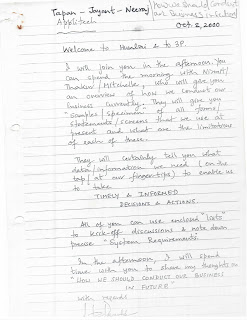 Tapan - Jayant - Neeraj
Applitech
How we should Conduct
our Business in School
Oct. 2, 2000
Welcome to Mumbai & to 3P.
I will join you in the afternoon. You
can spend the morning with
Thakur / Mitchelle, who will give you
an overview of how we conduct our
business currently. They will give you
samples/specimen of all forms/
statements/screens that we use at
present and what are the limitations
of each of these.
They will certainly tell you what
data/information we need (on the
tap/at our fingertips) to enable us
to take
TIMELY & INFORMED
DECISIONS & ACTIONS.
All of you can use enclosed "lists"
to kick-off discussions & note down
precise "System Requirements"
In the afternoon, I will spend
time with you to share my thoughts on
"HOW WE SHOULD CONDUCT OUR BUSINESS
IN FUTURE"
with regards